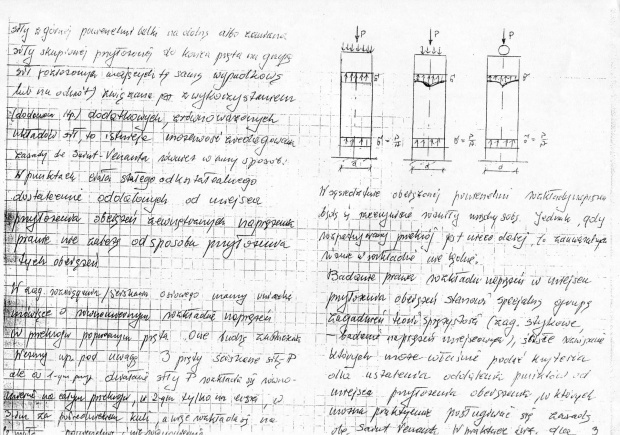 siły z górnej powierzchni belki na dolną albo zamiana
siły skupionej przyłożonej do końca pręta na grupę
sił rozłożonych mających tę samą wypadkową
lub na odwrót) związana jest z wykorzystaniem
(dodaniem itp) dodatkowych, zrównoważonych
układów sił, to istnieje możliwość zredagowania
zasady de Saint-Venanta również w inny sposób:
W punktach ciała stałego odkształcalnego
dostatecznie oddalonych od miejsca
przyłożenia obciążeń zewnętrznych naprężenia
prawie nie zależą od sposobu przyłożenia
tych obciążeń
W zag. rozciągania/ściskania osiowego mamy
mówiące o równomiernym rozkładzie naprężeń
w przekroju poprzecznym pręta. One budzą zastrzeżenia
Weźmy np. pod uwagę 3 pręty ściskane siłą P
ale w 1-ym przyp. działanie siły P rozkłada się równo-
miernie na całym przekroju, w 2-gim tylko na część, w
3-cim za pośrednictwem kuli, a więc rozkłada się na
P P P
σ σ σ
σ = P/F σ = P/F
d d
W sąsiedztwie obciążonej powierzchni rozkłady naprężeń
będą w rzeczywistości różniły między sobą. Jednak, gdy
rozpatrywany przekrój jest nieco dalej, to zauważalnych
różnic w rozkładzie nie będzie.
Badanie prawa rozkładu naprężeń w miejscu
przyłożenia obciążeń stanowi specjalną grupę
zagadnień teorii sprężystości (zag. stykowe,
– badanie naprężeń miejscowych), ścisłe rozwiązanie
których może właśnie podać kryteria
dla ustalenia oddalenia punktów od
miejsca przyłożenia obciążenia, w których
można praktycznie posługiwać się zasadą
de Saint Venanta. W praktyce inż. dla 3